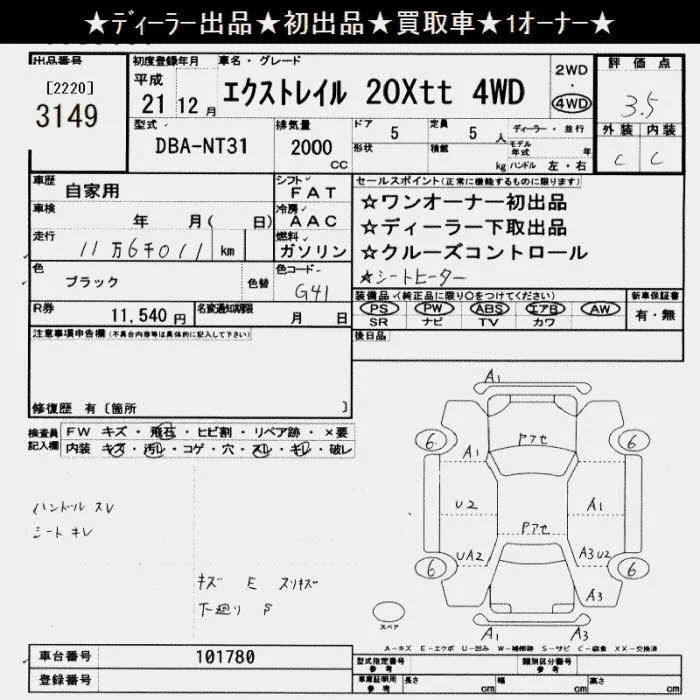 ★ディーラー出品★初出品★買取車★1オーナー★
出品番号 初度登録年月 車名・グレード 評価点
[2220]
3149
平成
21 12月 エクストレイル 20Xtt 4WD
2WD
・
4WD
3.5
型式 排気量 ドア 定員 ディーラー・並行 外装 内装
DBA-NT31 2000 CC 5 5 人 モデル年式 年
形状 積載 kg ハンドル 左・右 C C
車歴 自家用 シフト FAT セールスポイント(正常に機能するものに限ります)
☆ワンオーナー初出品
☆ディーラー下取出品
☆クルーズコントロール
☆シートヒーター
車検 年 月( 日) 冷房 AAC
走行 11万6千011 km 燃料 ガソリン
色 ブラック 色替 色コード G41
装備品 (純正品に限り○をつけてください) 新車保証書
PS PW ABS エアB AW 有・無
SR ナビ TV カワ
R券 11,540円 名変通知期限 月 日
注意事項申告欄(不具合内容等は具体的に記入して下さい) 後日品
修復歴 有〔箇所 〕
検査員記入欄 FW キズ・飛石・ヒビ割・リペア跡・×要
内装 キズ・汚レ・コゲ・穴・スレ・キレ・破レ
ハンドル スレ
シート キレ
キズ E スリキズ
下廻り S
A1
6 Pアセ 6
A1
U2 A1
Pアセ
UA2 A3U2
6 6
A3
スペア
A1 A3
A-キズ E-エクボ U-凹み W-補修跡 S-サビ C-腐食 XX-交換済
車台番号 101780 型式指定番号 参考 類別区分番号 参考
登録番号 車庫証明用 参考 長さ cm 幅 cm 高さ cm